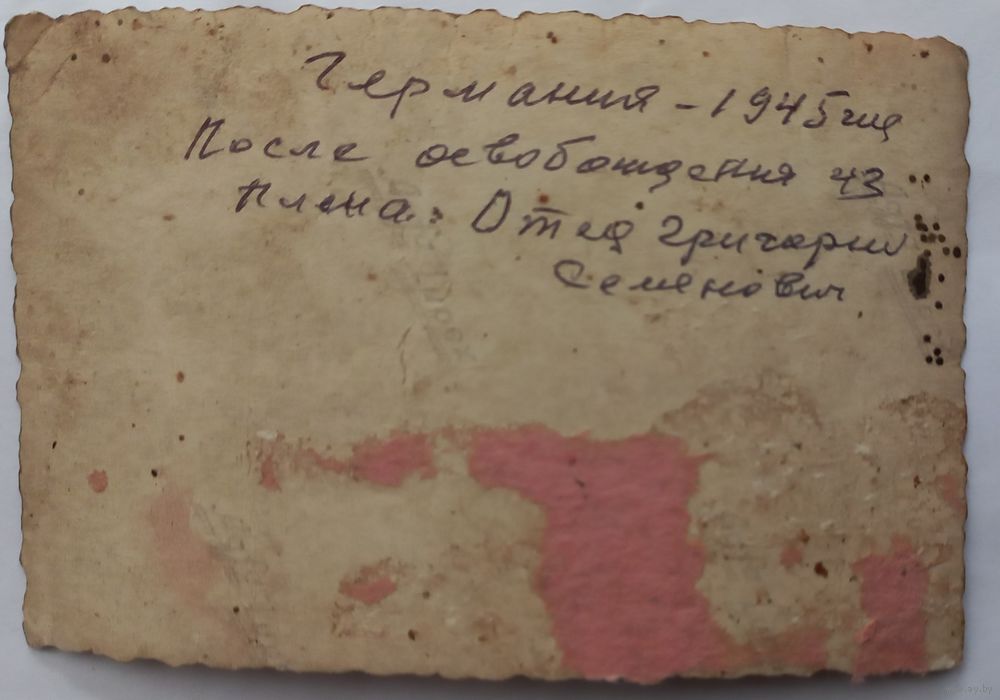 Германия - 1945 год
После освобождения из
плена: Отец Григорий
Семенович
ay.by